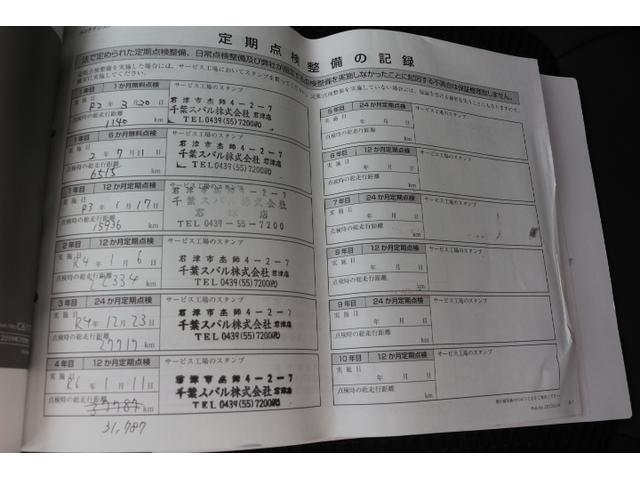 定期点検整備の記録
法で定められた定期点検整備、日常点検整備及び弊社が指定する点検整備を実施しなかったことに起因する不具合は保証修理致しません。
1か月無料点検
サービス工場のスタンプ
実施日
3月20日
点検時の総走行距離
1140 km
君津市杢師4-2-7
千葉スバル株式会社 君津店
TEL 0439(55)7200㈹
6か月無料点検
サービス工場のスタンプ
実施日
2年7月11日
点検時の総走行距離
6515 km
君津市杢師4-2-7
千葉スバル株式会社 君津店
TEL 0439(55)7200㈹
1年目 12か月定期点検
サービス工場のスタンプ
実施日
R3年1月17日
点検時の総走行距離
15936 km
君津市杢師4-2-7
千葉スバル株式会社
君津店
0439-55-7200
2年目 12か月定期点検
サービス工場のスタンプ
実施日
R4年1月6日
点検時の総走行距離
22334 km
君津市杢師4-2-7
千葉スバル株式会社 君津店
TEL 0439(55)7200㈹
3年目 24か月定期点検
サービス工場のスタンプ
実施日
R4年12月23日
点検時の総走行距離
27717 km
君津市杢師4-2-7
千葉スバル株式会社 君津店
TEL 0439(55)7200㈹
4年目 12か月定期点検
サービス工場のスタンプ
実施日
R6年1月11日
点検時の総走行距離
37787 km
31,787
君津市杢師4-2-7
千葉スバル株式会社 君津店
TEL 0439(55)7200㈹
5年目 24か月定期点検
サービス工場のスタンプ
実施日
年 月 日
点検時の総走行距離
km
6年目 12か月定期点検
サービス工場のスタンプ
実施日
年 月 日
点検時の総走行距離
km
7年目 24か月定期点検
サービス工場のスタンプ
実施日
年 月 日
点検時の総走行距離
km
8年目 12か月定期点検
サービス工場のスタンプ
実施日
年 月 日
点検時の総走行距離
km
9年目 24か月定期点検
サービス工場のスタンプ
実施日
年 月 日
点検時の総走行距離
km
10年目 12か月定期点検
サービス工場のスタンプ
実施日
年 月 日
点検時の総走行距離
km